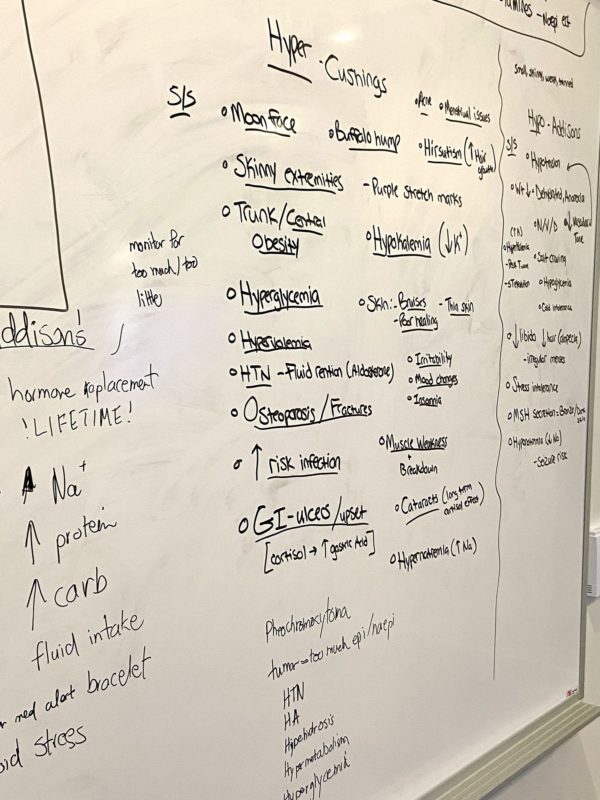 Hyper - Cushings
S/S
Moon face
Buffalo hump
Acne
Menstrual issues
Hirsutism (↑ Hair growth)
Skinny extremities
- Purple stretch marks
Trunk/Central
Obesity
Hypokalemia (↓K⁺)
Hyperglycemia
Skin: - Bruises - Thin skin
- Poor healing
Hypervolemia
HTN - Fluid rention (Aldosterone)
Irritability
Mood changes
Insomnia
Osteoporosis/Fractures
↑ risk infection
Muscle Weakness
+
Breakdown
GI-ulcers/upset
[cortisol → ↑ gastric Acid]
Cataracts (long term
cortisol effect)
Hypernatremia (↑ Na)
Pheochromocytoma
tumor = too much epi/noepi
HTN
HA
Hypermetabolism
monitor for
too much/too
little
ddison's
hormone replacement
!LIFETIME!
Na⁺
↑ protein
↑ carb
fluid intake
med alert bracelet
stress
Small, skinny, weak, tanned
Hypo - Addisons
S/S
Hypotension
Wt ↓ - Debilitated, Anorexia
N/V/D
↓
Tone
(↑K)
Salt craving
Hypoglycemia
Cold intolerance
↓ libido ↓ hair (alopecia)
- irregular menses
Stress intolerance
MSH secretion - Bronze/
skin
Hyponatremia (↓ Na)
- Seizure risk